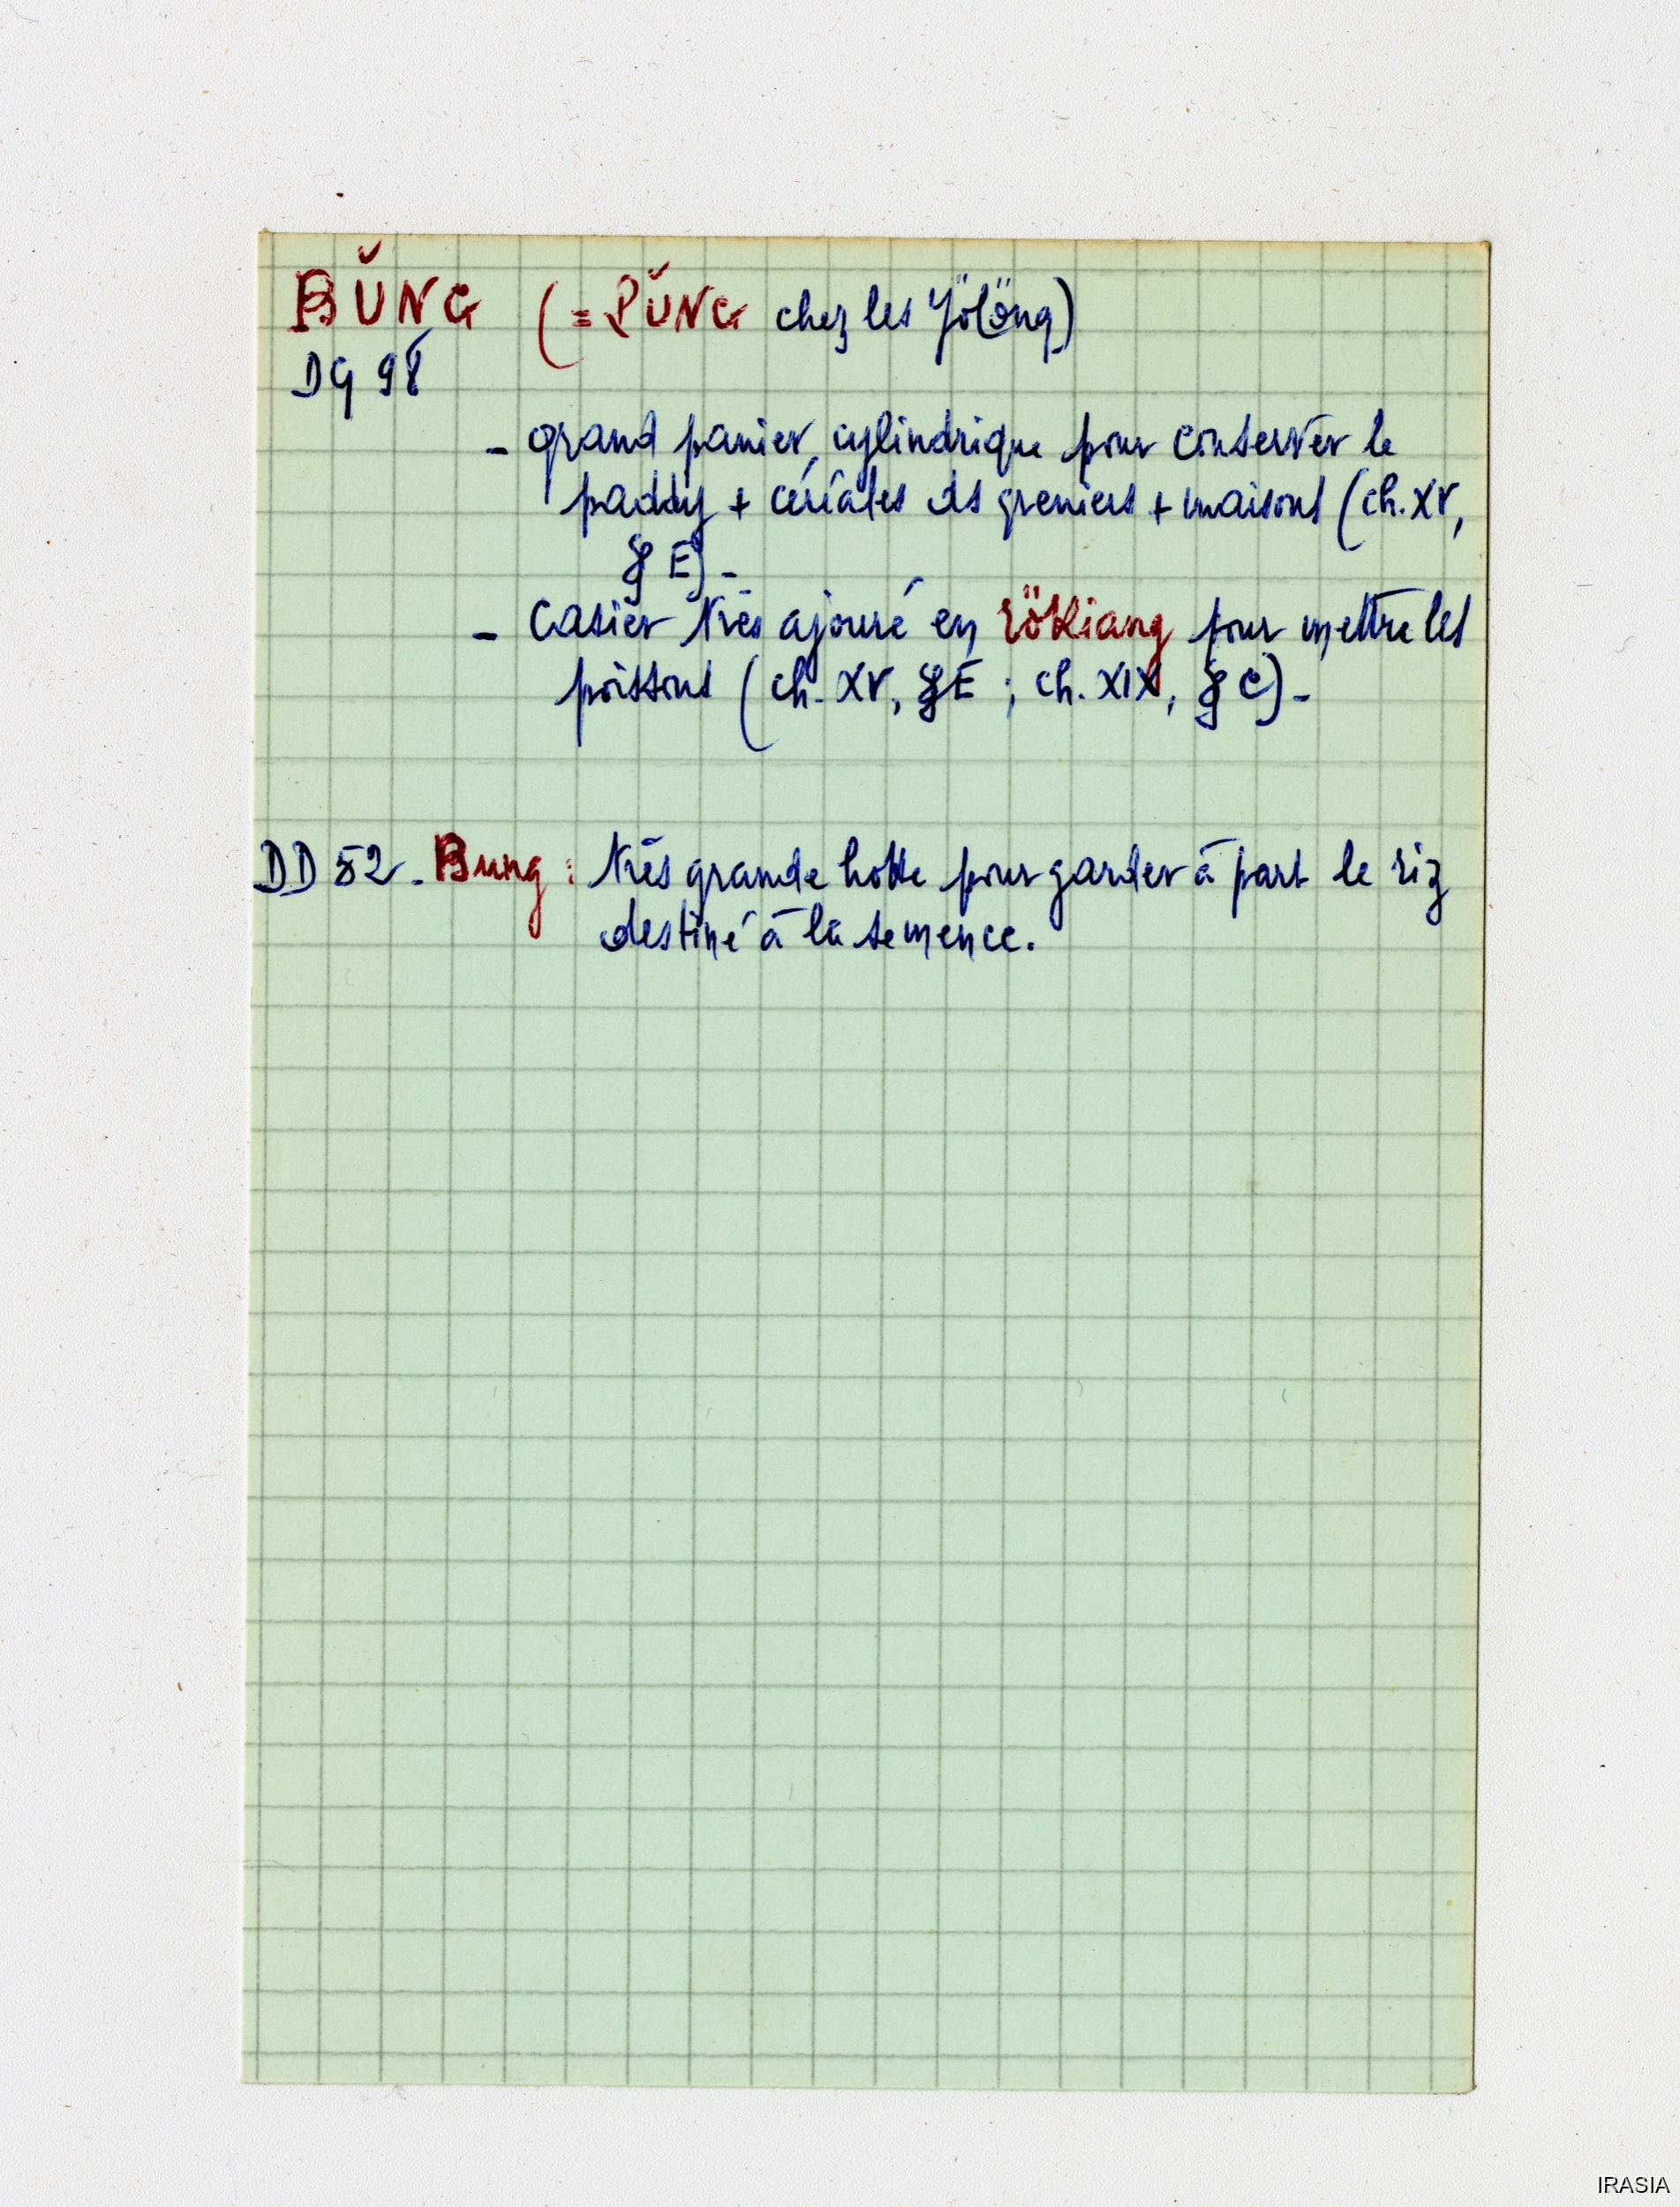 BŬNG (= PŬNG chez les Yölöng)
DG 98
- grand panier cylindrique pour conserver le
paddy + céréales ds greniers + maisons (ch. XV,
§ E) -
- Casier très ajouré en röKiang pour mettre les
poissons (ch. XV, § E ; ch. XIX, § C) -
DD 52 - Bung : très grande hotte pour garder à part le riz
destiné à la semence.
IRASIA